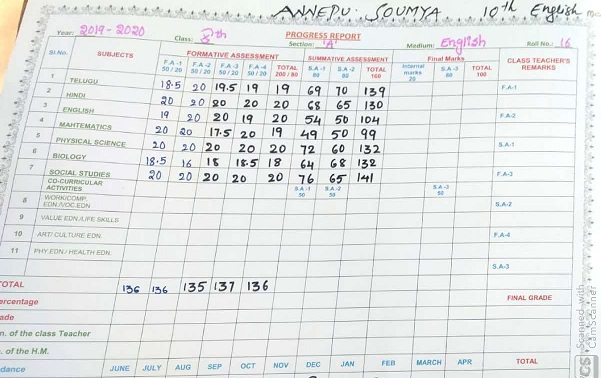 ANNEPU. SOUMYA 10th English
PROGRESS REPORT
Year: 2019-2020 Class: Xth Section: "A" Medium: English Roll No.: 16
Sl.No. SUBJECTS FORMATIVE ASSESSMENT SUMMATIVE ASSESSMENT Final Marks CLASS TEACHER'S REMARKS
F.A-1 50/20 F.A-2 50/20 F.A-3 50/20 F.A-4 50/20 TOTAL 200/80 S.A-1 80 S.A-2 80 TOTAL 160 Internal marks 20 S.A-3 80 TOTAL 100
1 TELUGU 18.5 20 19.5 19 19 69 70 139 F.A-1
2 HINDI 20 20 20 20 20 68 65 130
3 ENGLISH 19 20 20 19 20 54 50 104 F.A-2
4 MAHTEMATICS 20 20 17.5 20 19 49 50 99
5 PHYSICAL SCIENCE 20 20 20 20 20 72 60 132 S.A-1
6 BIOLOGY 18.5 16 18 18.5 18 64 68 132
7 SOCIAL STUDIES 20 20 20 20 20 76 65 141 F.A-3
CO-CURRICULAR ACTIVITIES S.A-1 50 S.A-2 50 S.A-3 50
8 WORK/COMP. EDN./VOC.EDN S.A-2
9 VALUE EDN./LIFE SKILLS
10 ART/ CULTURE EDN. F.A-4
11 PHY.EDN./ HEALTH EDN.
S.A-3
OTAL 136 136 135 137 136
ercentage FINAL GRADE
ade
n. of the class Teacher
. of the H.M.
dance JUNE JULY AUG SEP OCT NOV DEC JAN FEB MARCH APR TOTAL
Scanned with
CamScanner